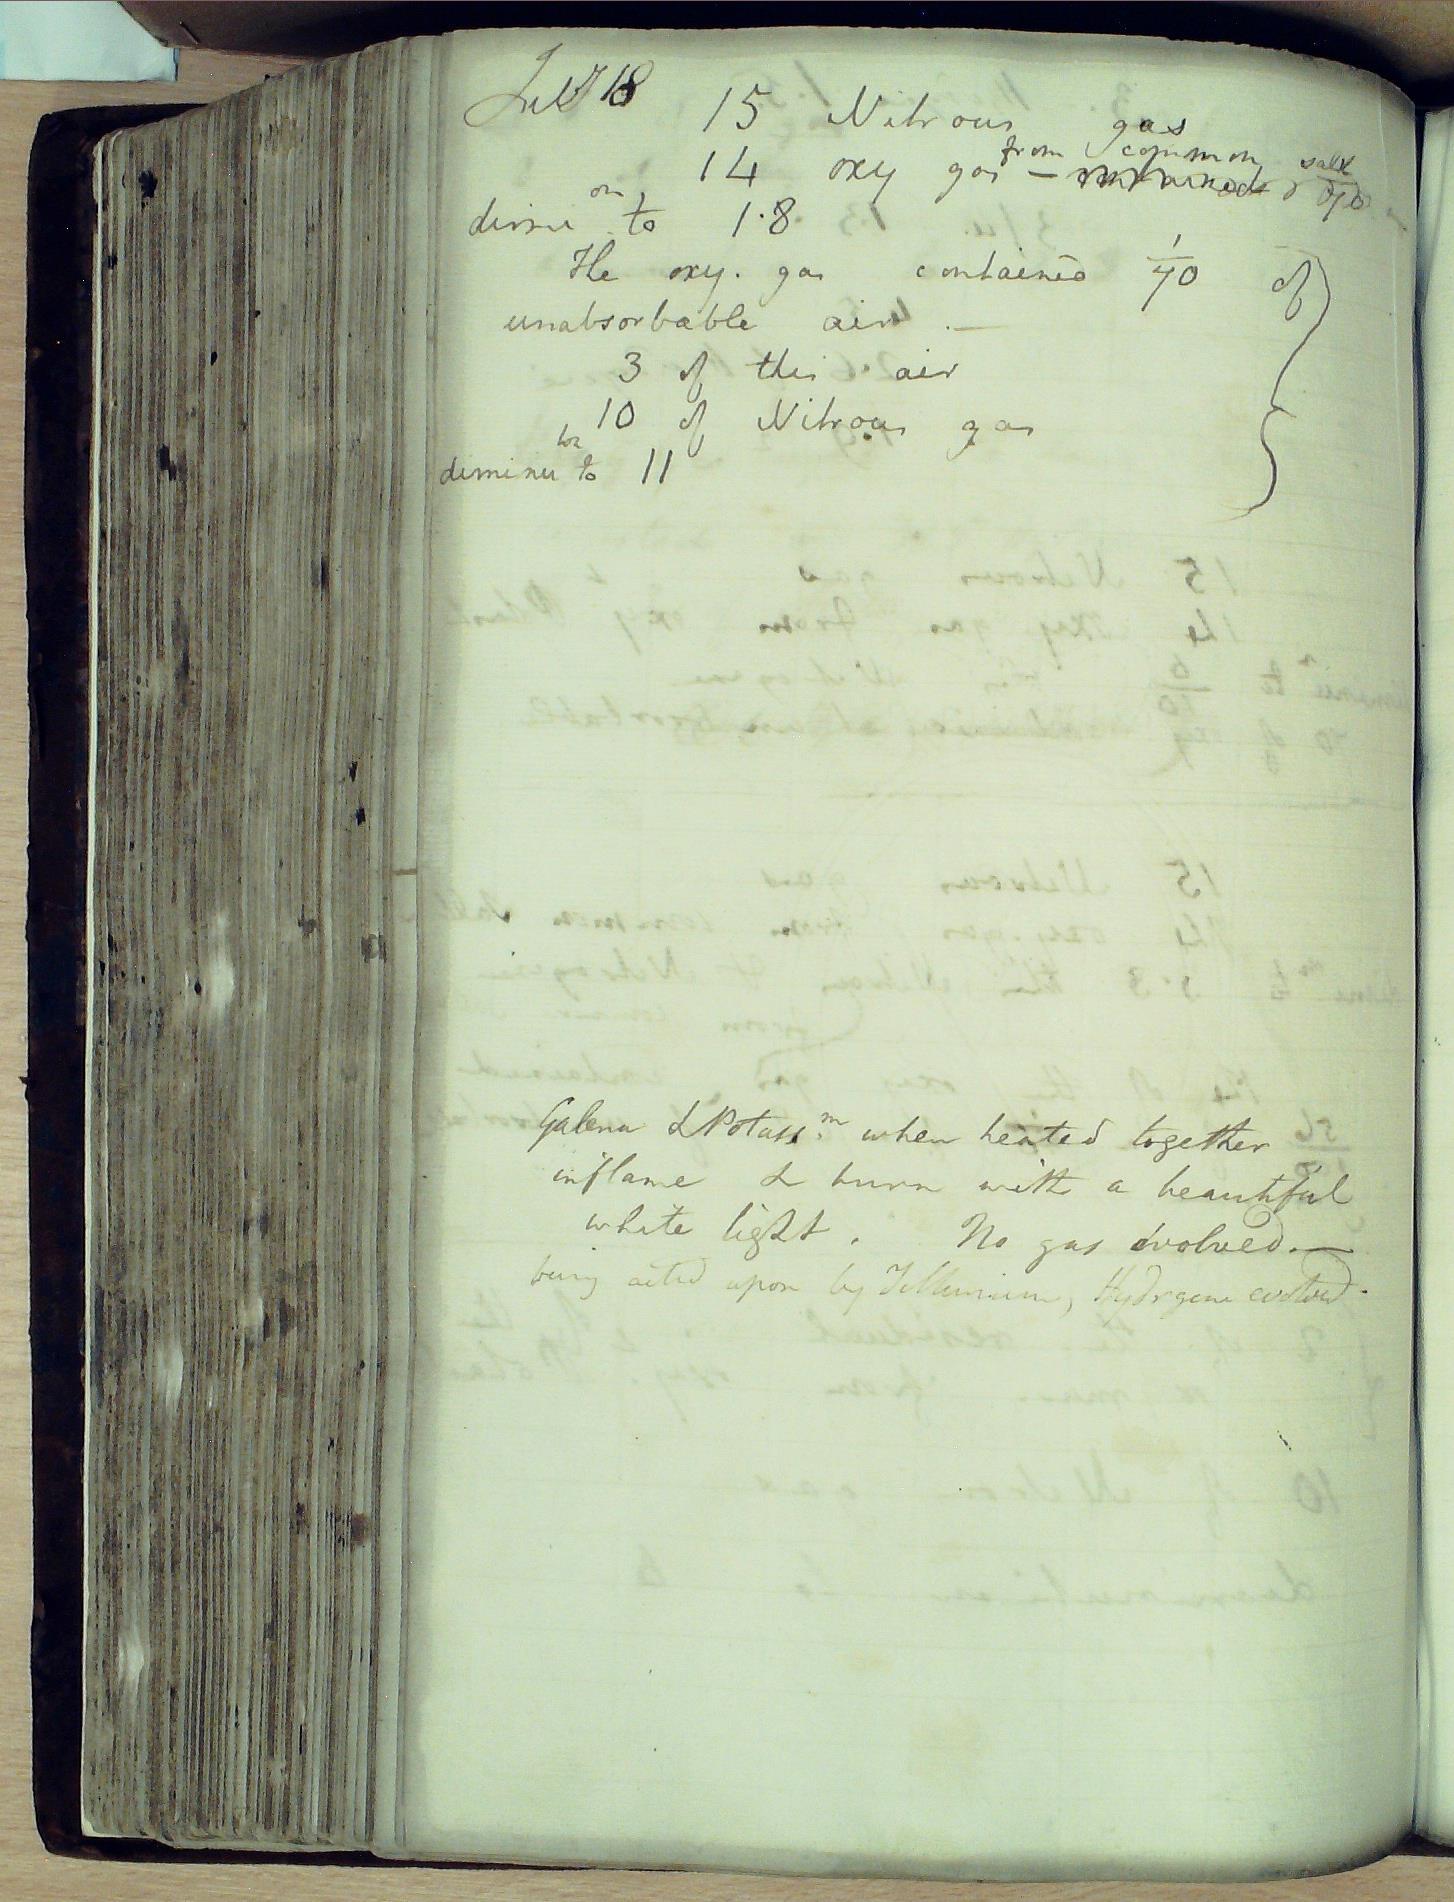 July 18
15 Nitrous gas
from common salt
14 oxy gas —
dimin on to 1.8
The oxy. gas contained 1/70 of
unabsorbable air. —
3 of this air
10 of Nitrous gas
diminu ton to 11
Galena & Potassm. when heated together
inflame & burn with a beautiful
white light. No gas evolved. —
being acted upon by Tellurium, Hydrgene evolved.